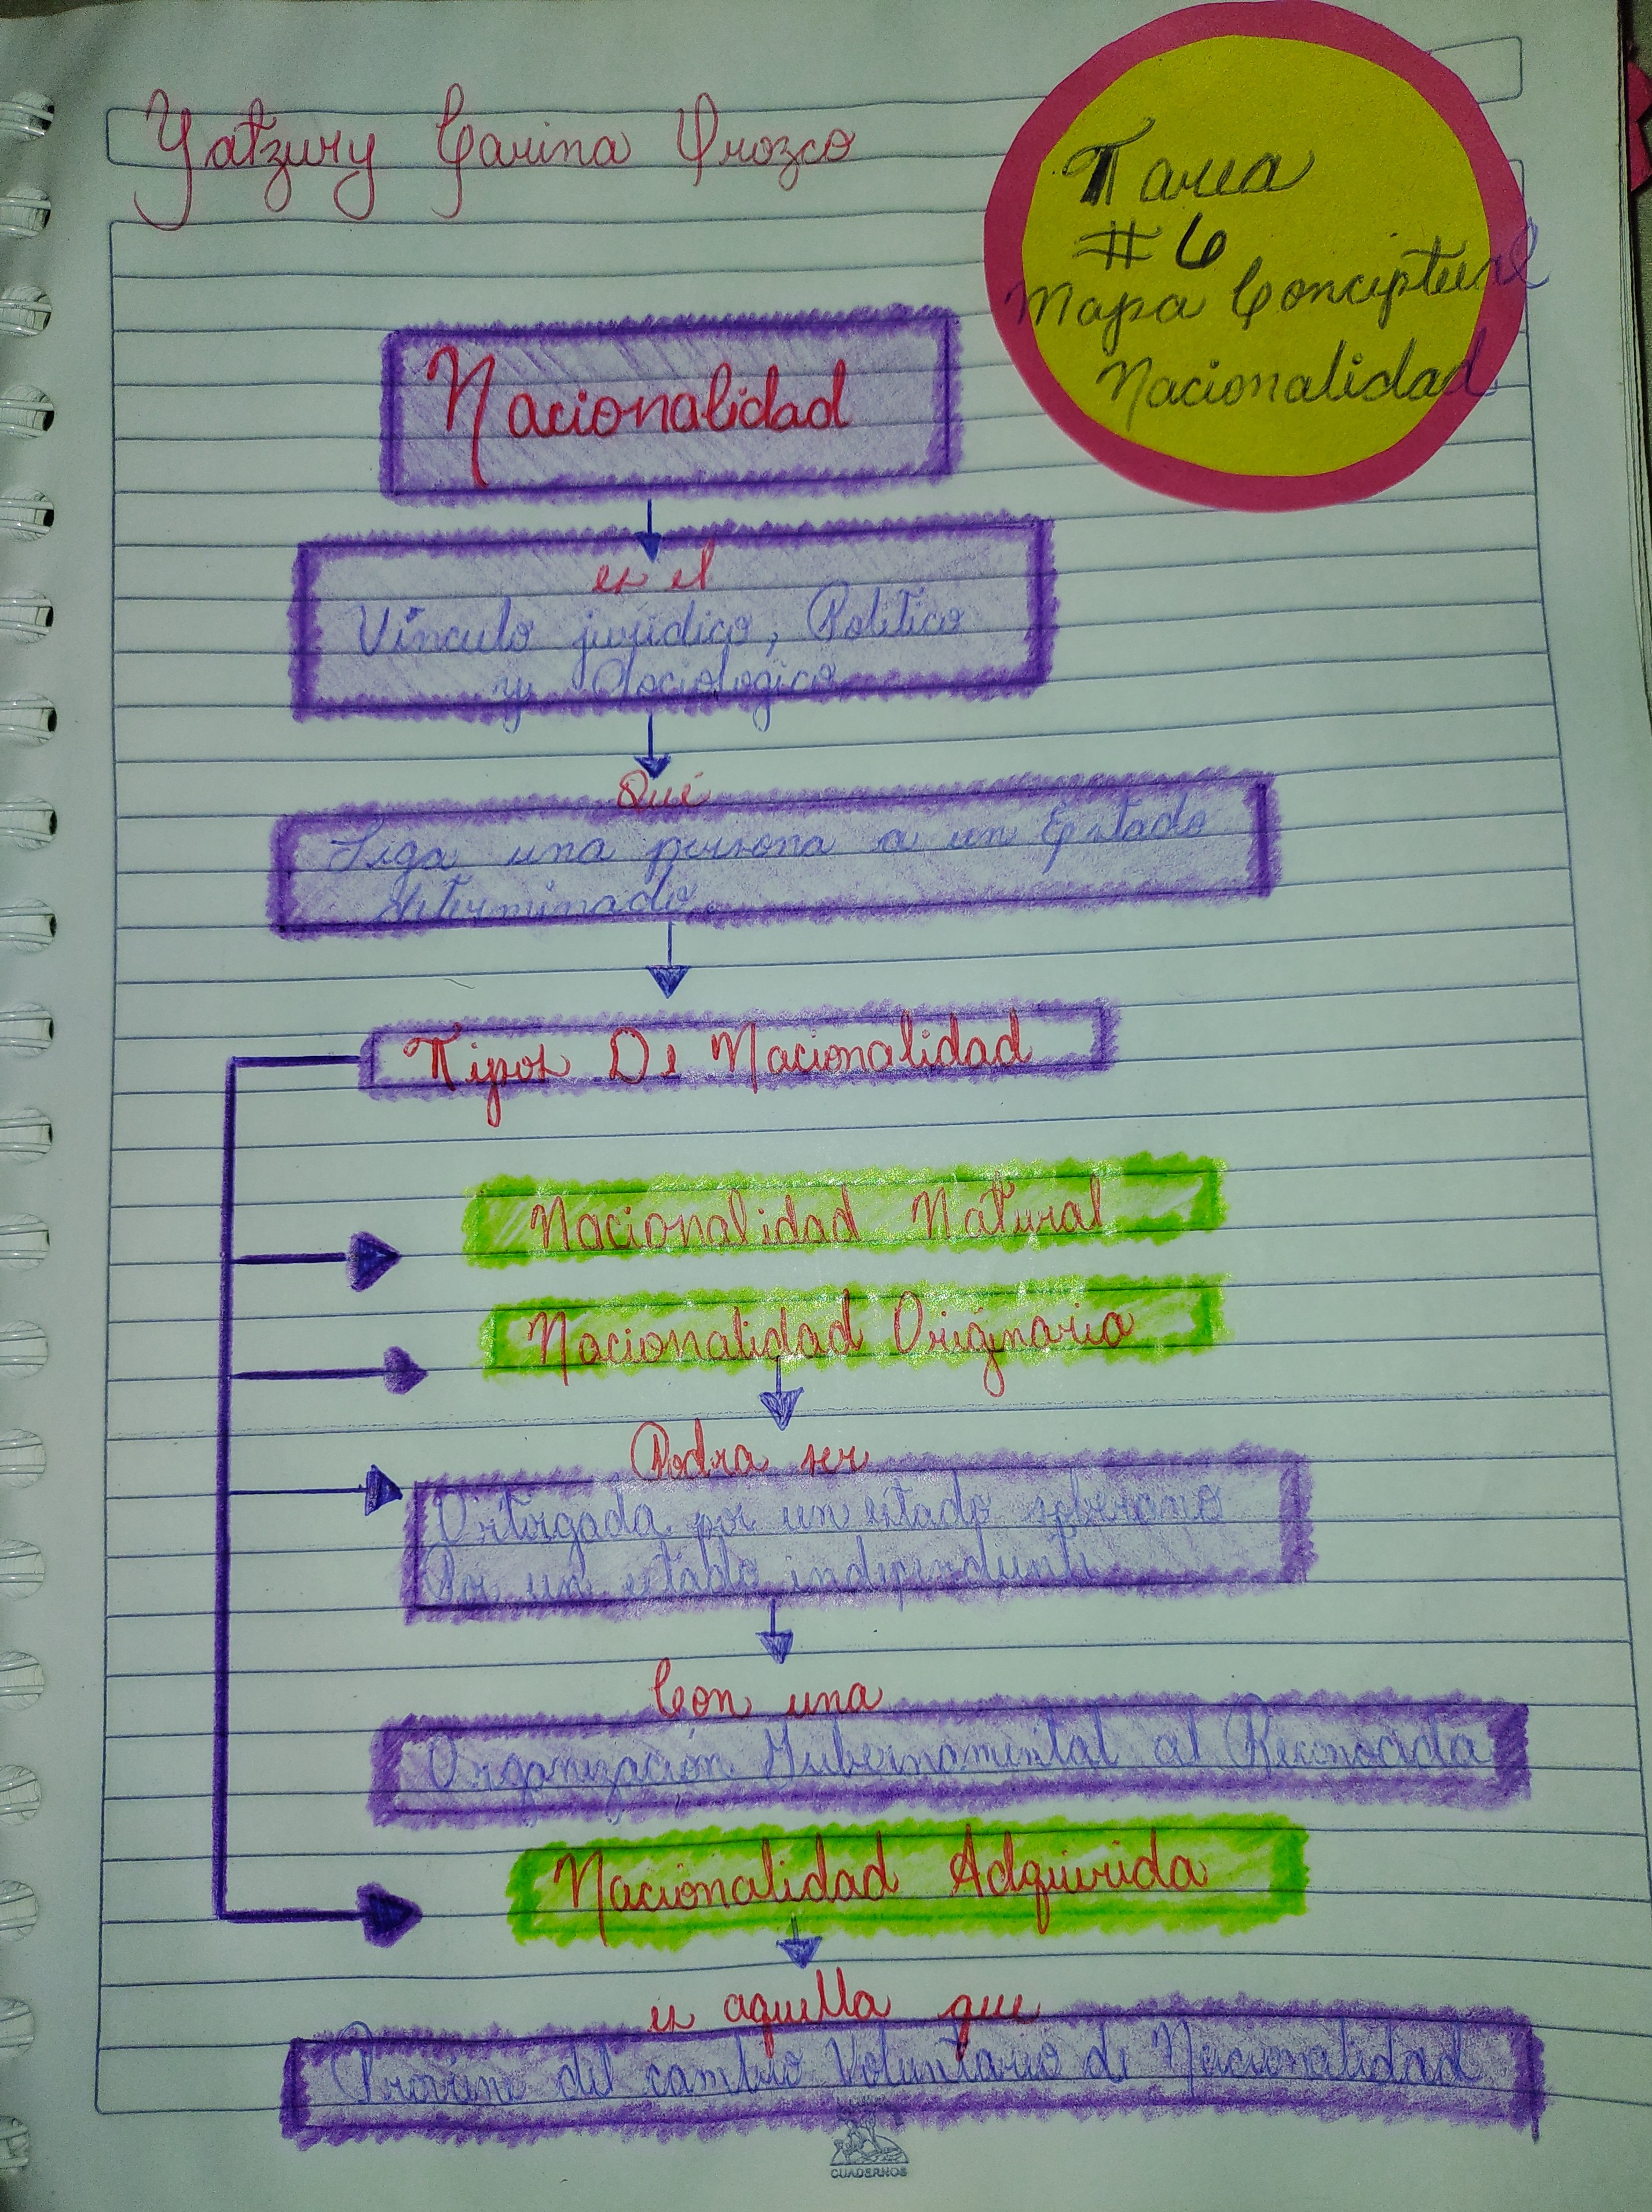 Yatzury Carina Orozco
Tarea
#6
Mapa Conceptual
Nacionalidad
Nacionalidad
es el
Vínculo jurídico, Politico
y Sociologico
Que
Liga una persona a un Estado
determinado.
Tipos De Nacionalidad
Nacionalidad Natural
Nacionalidad Originaria
Podra ser
Ortorgada por un estado soberano
Por un estado independiente
Con una
Organización Gubernamental al Reconocida
Nacionalidad Adquirida
es aquella que
Proviene del cambio Voluntario de Nacionalidad
CUADERNOS